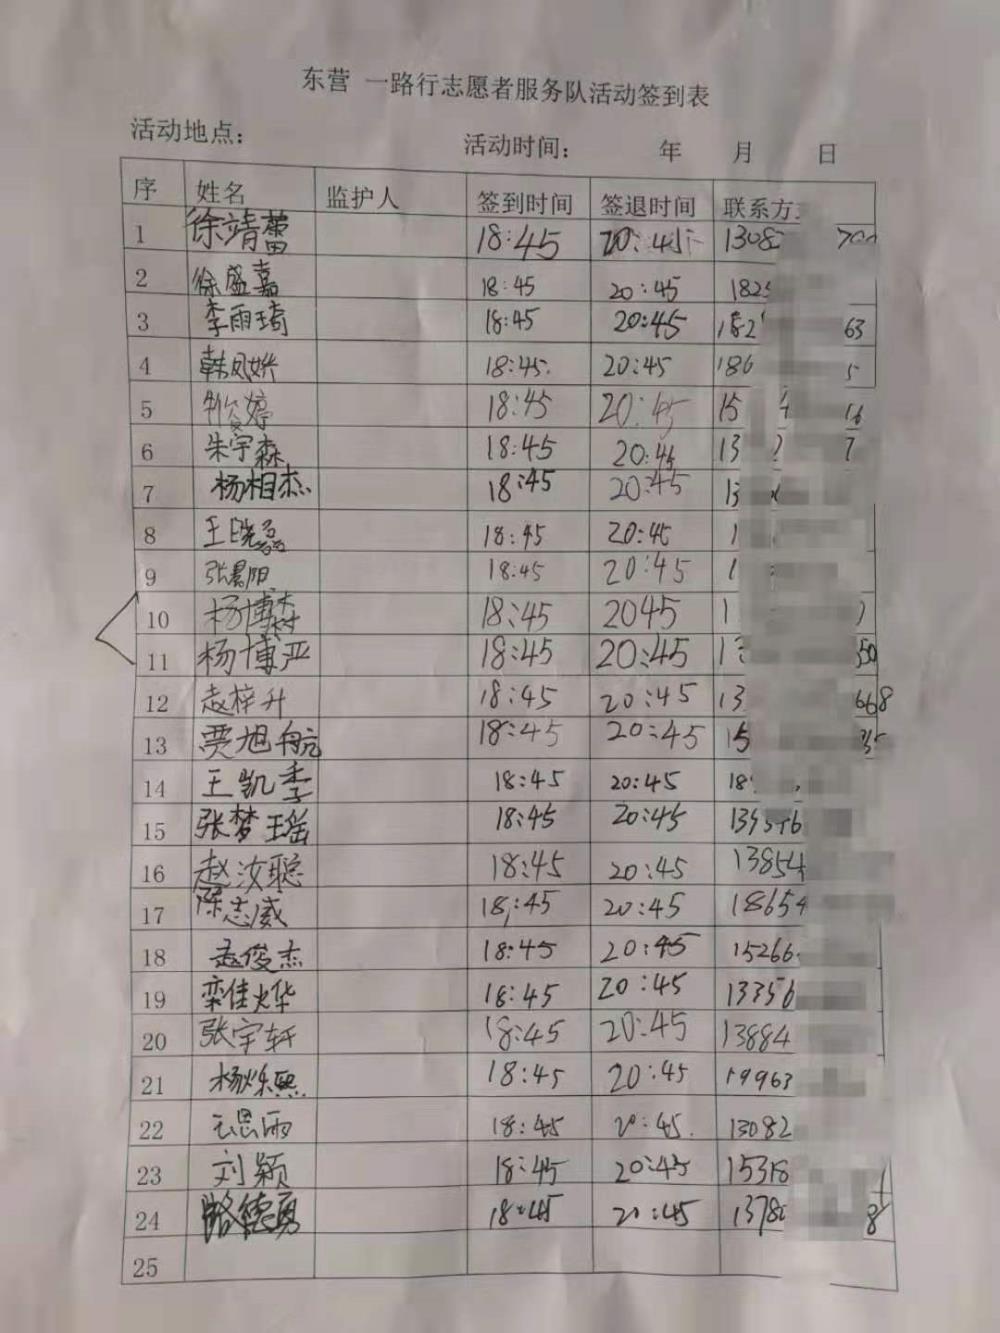 东营 一路行志愿者服务队活动签到表
活动地点： 活动时间： 年 月 日
序 姓名 监护人 签到时间 签退时间 联系方
1 徐靖蕾 18:45 20:45 1308
2 徐盛嘉 18:45 20:45 182
3 李雨琦 18:45 20:45 182 63
4 18:45. 20:45 186 5
5 18:45 20:45 15 16
6 朱宇森 18:45 20:45 13 7
7 杨相杰 18:45 20:45 13
8 王晓磊 18:45 20:45 1
9 张景阳 18:45 20:45 1
10 杨博森 18:45 2045 1
11 杨博严 18:45 20:45 13 50
12 赵梓升 18:45 20:45 13 668
13 贾旭航 18:45 20:45 15 35
14 王凯季 18:45 20:45 18
15 张梦瑶 18:45 20:45 139546
16 赵汝聪 18:45 20:45 13854
17 陈志威 18:45 20:45 18654
18 孟俊杰 18:45 20:45 15266
19 栾佳烨 18:45 20:45 13356
20 张宇轩 18:45 20:45 13884
21 杨烁熙 18:45 20:45 19963
22 18:45 20:45. 13082
23 刘颖 18:45 20:45 15318
24 路德勇 18:45 20:45 1378 8
25